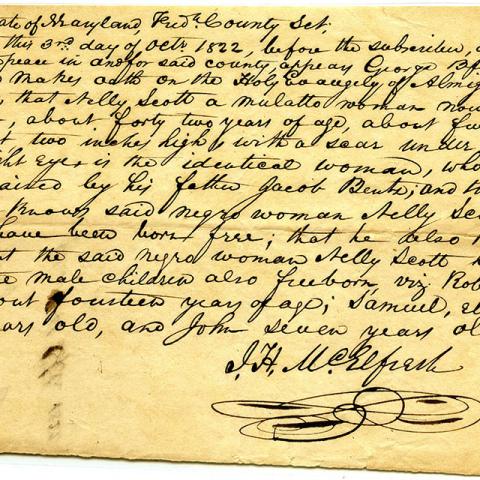 ate of Maryland, Fredk County Sct,
this 3rd day of Octr 1822, before the subscriber, a
peace in and for said county, appears George B
makes oath on the Holy Evangely of Almig
that Nelly Scott a mulatto woman now
about forty two years of age, about five
t two inches high, with a scar under
ght eye is the identical woman, who
ained by his father Jacob Bentz; and th
Knows said negro woman Nelly Sc
have been born free; that he also k
t the said negro woman Nelly Scott h
e male children also freeborn, viz Rob
out fourteen years of age; Samuel, el
ars old, and John seven years ol
J. H. McElfresh